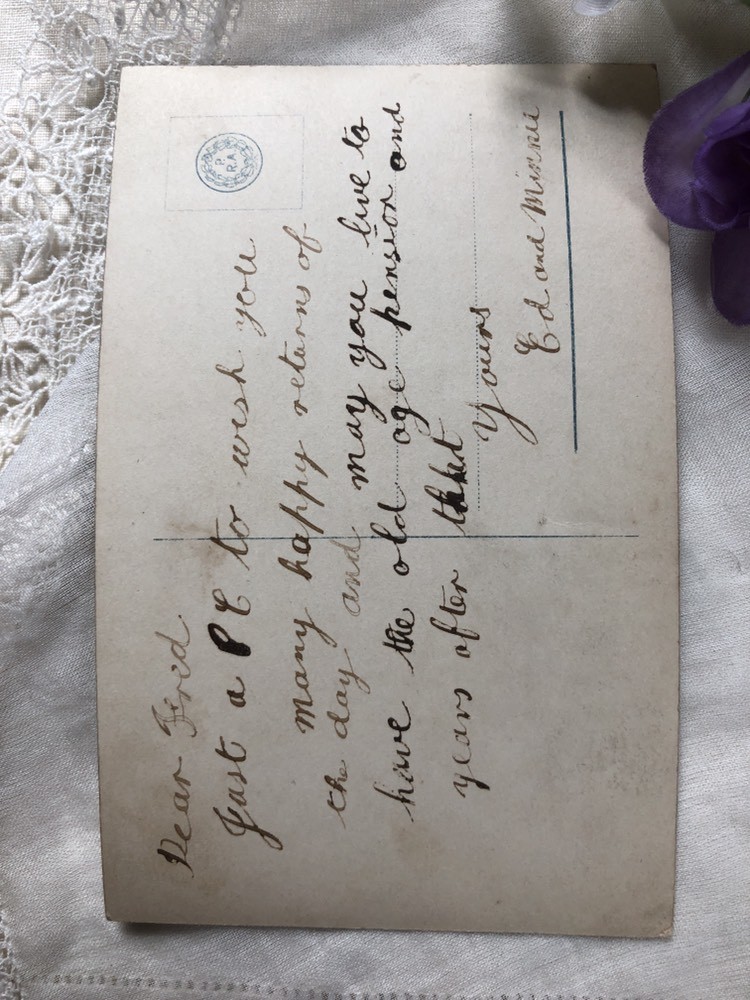 P.
R.A
Dear Fred
Just a PC to wish you
many happy returns of
the day and may you live to
have the old age pension and
years after that
Yours
Ed and Minnie